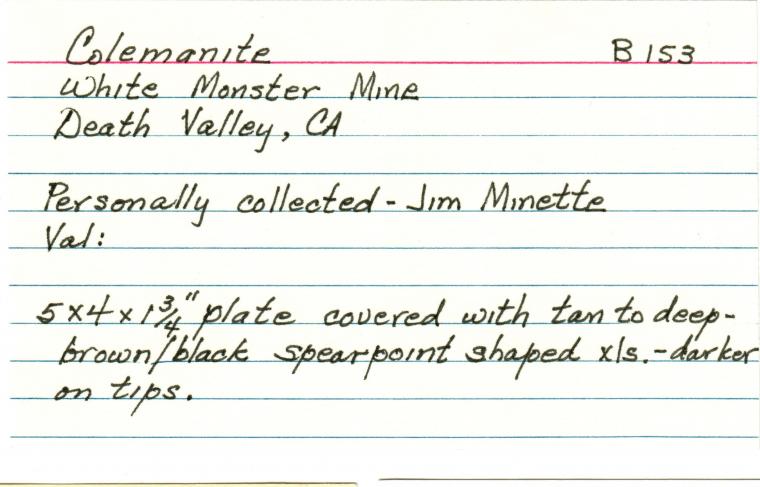 Colemanite B153
White Monster Mine
Death Valley, CA
Personally collected - Jim Minette
Val:
5x4x1 3/4" plate covered with tan to deep-
brown/black spearpoint shaped xls. - darker
on tips.